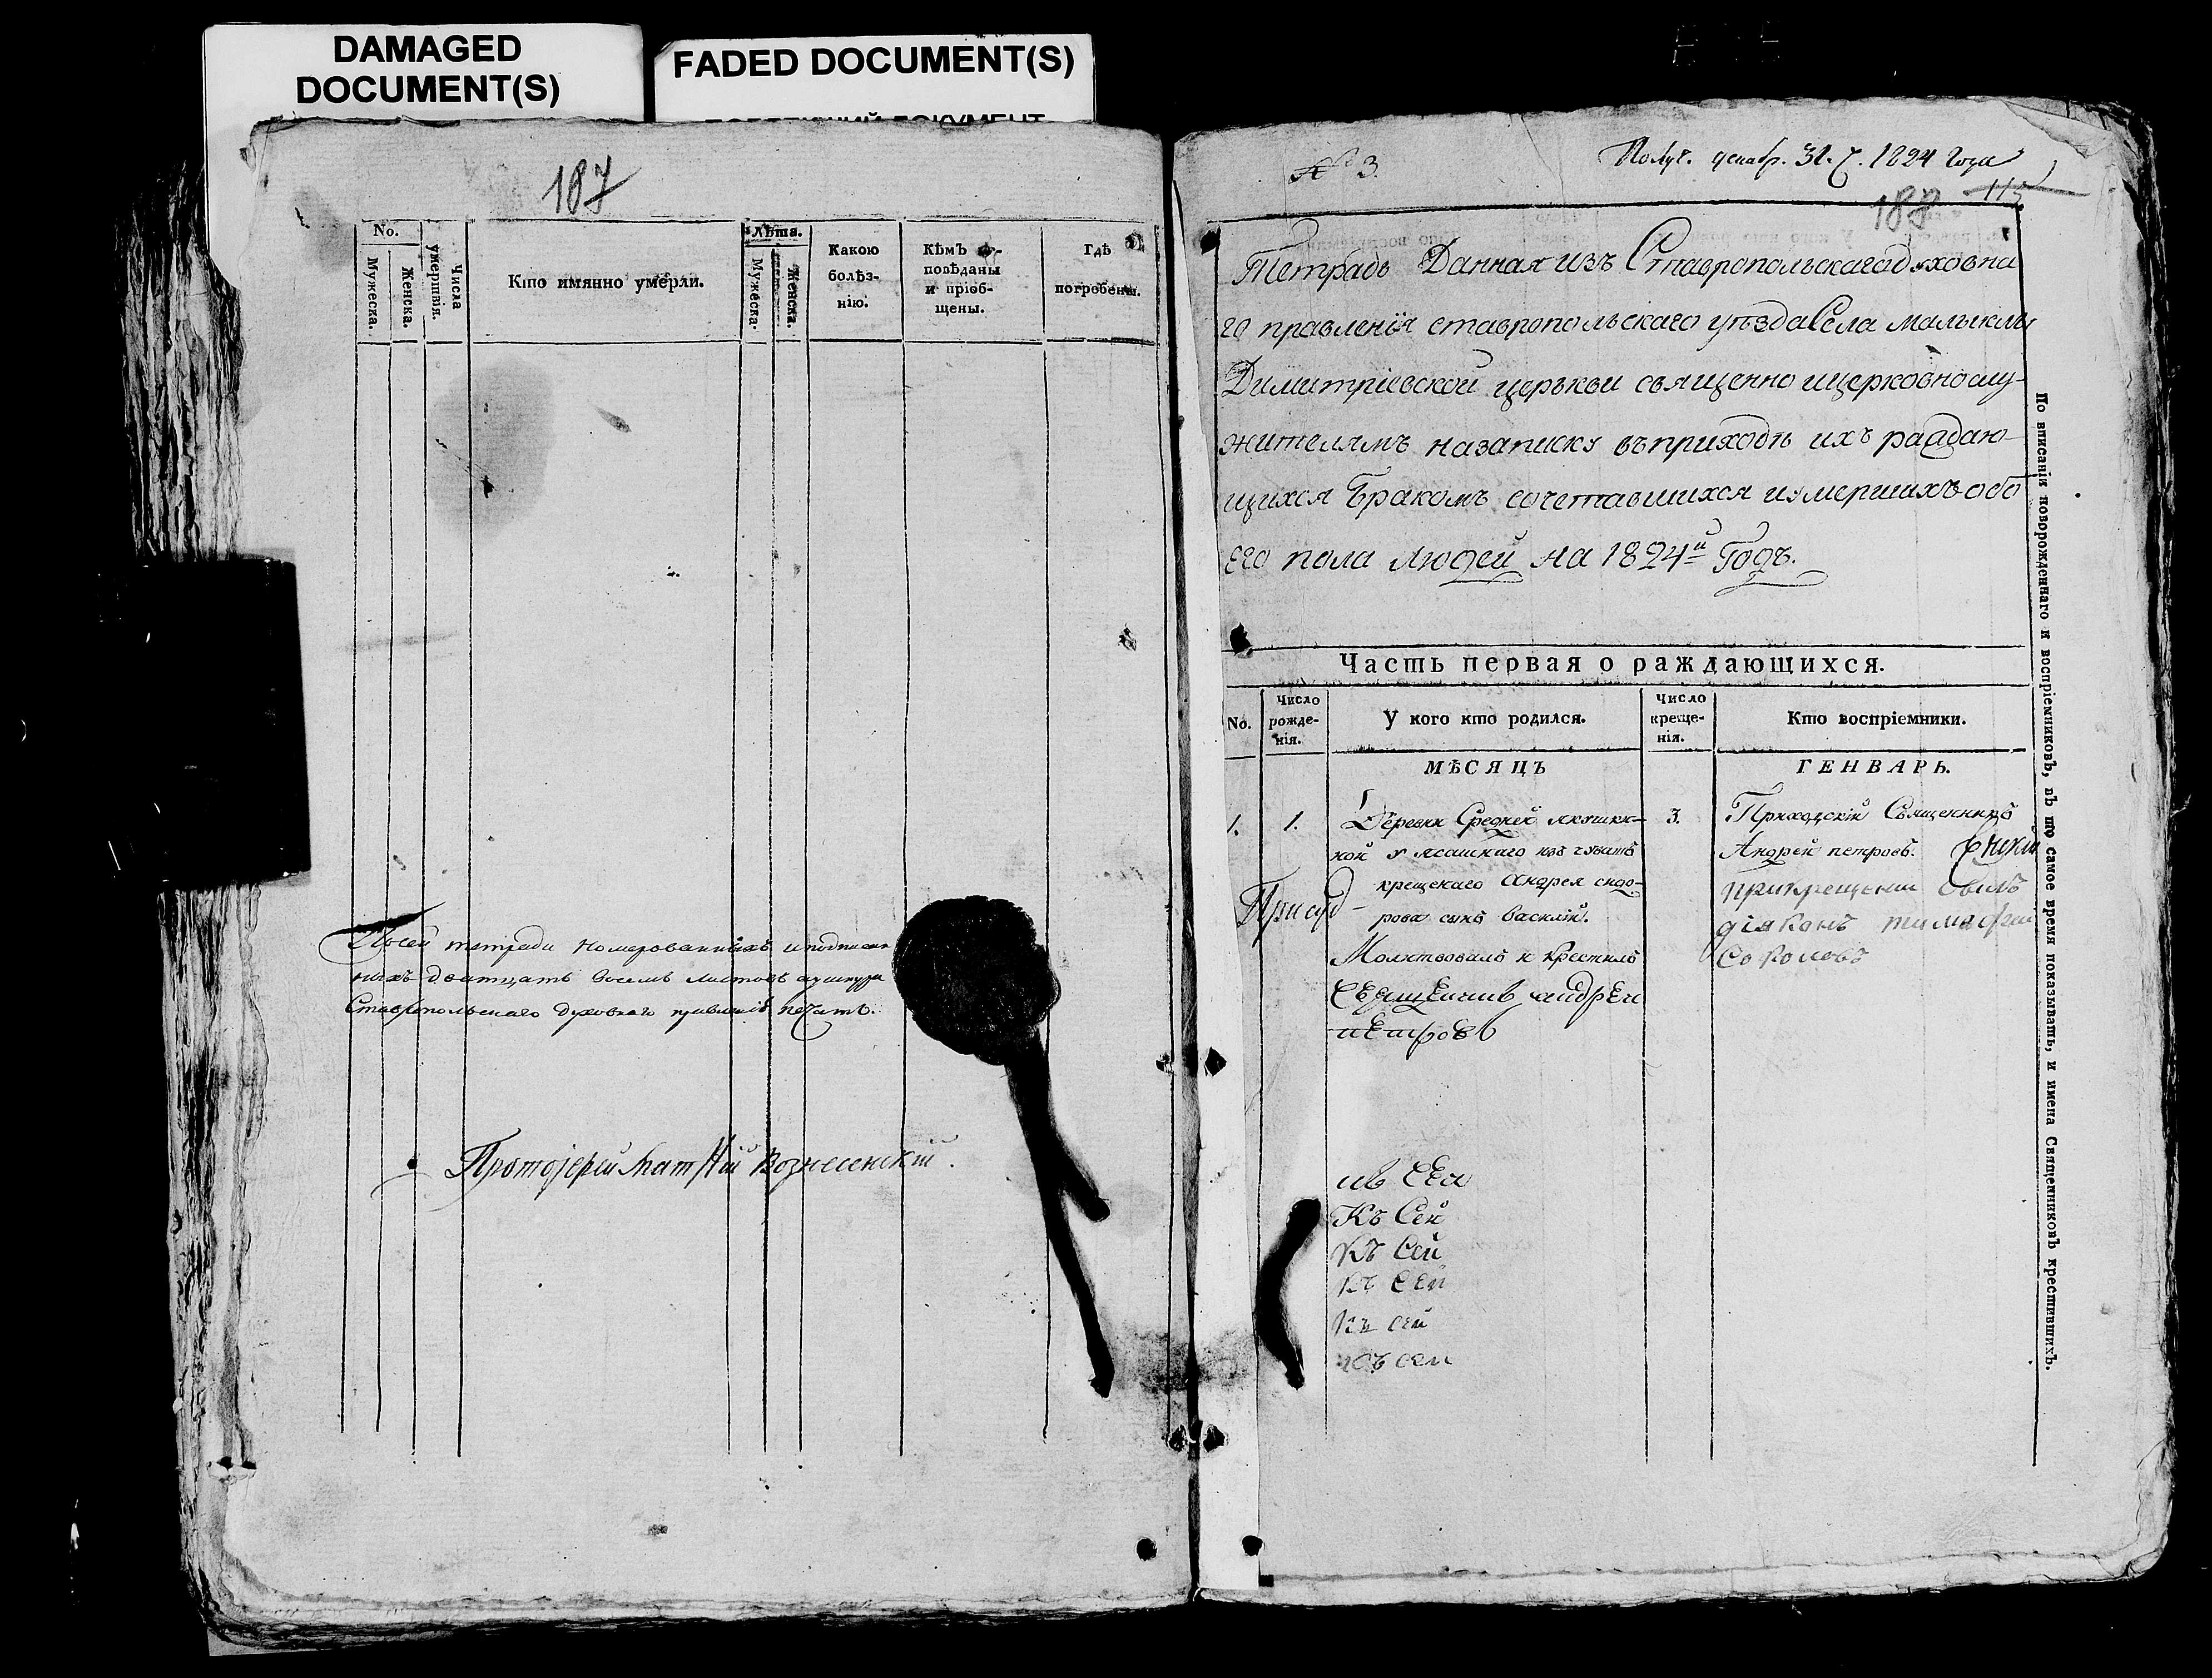 DAMAGED
DOCUMENT(S)
FADED DOCUMENT(S)
187
No.
Мужеска.
Женска.
Числа умершвія.
Кто имянно умерли.
Лѣта.
Мужеска.
Женска.
Какою
болѣз-
нію.
Кѣмъ
повѣданы
и пріоб-
щены.
Гдѣ
погребены.
тетради номерованныхъ и подписан
ныхъ дватцать восемь листовъ
Ставропольскаго духовнаго правленія печать.
Протоіерей Матѳій Вознесенскій.
№ 3.
Получ. декабр. 31. 1824 года
115
188
Тетрадь Данная изъ Ставропольскаго духовна
го правленія ставропольскаго уѣзда Села малыклы
Димитріевской церькви священно и церковнослу-
жителямъ на записку въ приходѣ ихъ раждаю-
щихся Бракомъ сочетавшихся и умершихъ обо
его пола людей на 1824й Годъ.
Часть первая о раждающихся.
No.
Число
рожде-
нія.
У кого кто родился.
Число
креще-
нія.
Кто воспріемники.
МѢСЯЦЪ
ГЕНВАРЬ.
1.
1.
Деревни Средней якушкин-
ной у ясашнаго изъ чувашъ
крещенаго Андрея сидо-
рова сынъ Василій.
Молитвовалъ и крестилъ
священникъ андреи
петровъ
3.
Приходскій Священникъ
Андрей петровъ.
при крещении былъ
діяконъ тимофей
Соколовъ
Къ Сей
Къ Сей
Къ сей
Къ сей
Къ сей
По вписаніи новорожденнаго и воспріемниковъ, въ то самое время показывать, и имена Священниковъ крестившихъ.